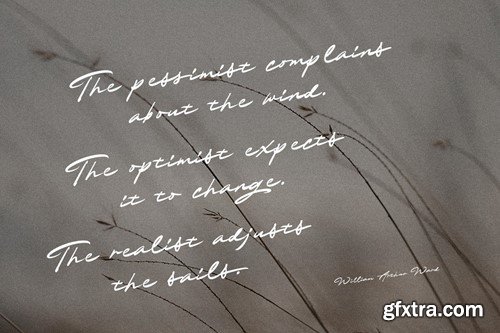 The pessimist complains
about the wind.
The optimist expects
it to change.
The realist adjusts
the sails.
William Arthur Ward
gfxtra.com